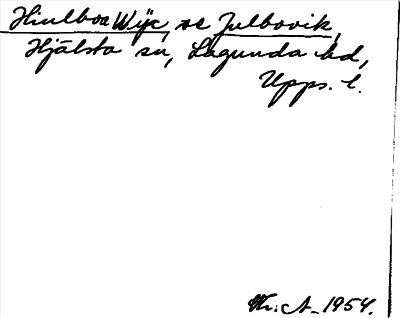 Hiulboa Wÿc, se Julbovik,
Hjälsta sn, Lagunda hd,
Upps. l.
1954.